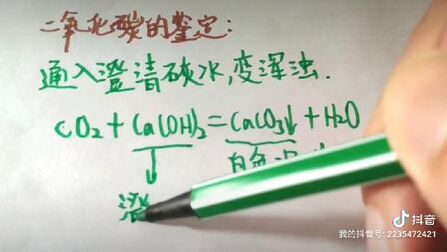 二氧化碳的鉴定:
通入澄清碳水,变浑浊.
CO₂+Ca(OH)₂=CaCO₃↓+H₂O
白色
澄
抖音
我的抖音号: 2235472421